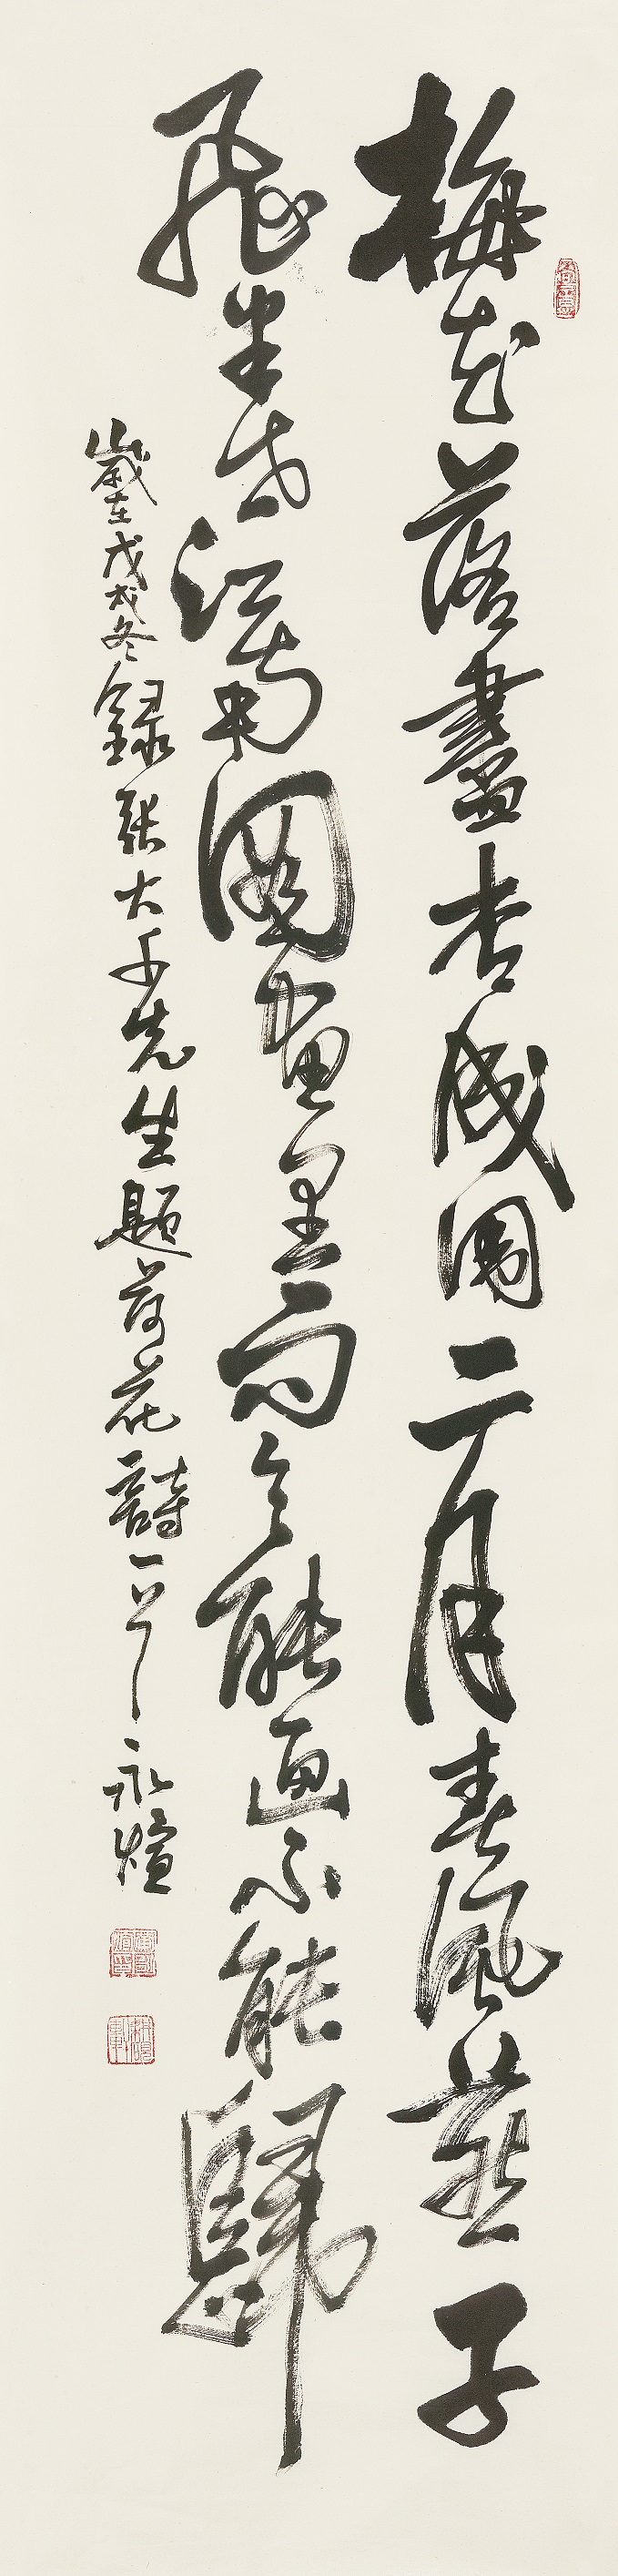 梅花落盡杏成圍二月春風燕子
飛半世江南圖畫里而今能画不能歸
歲在戊戌冬錄張大千先生題荷花詩一首 永煊